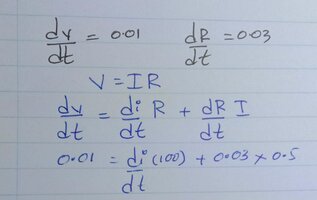 dv/dt = 0.01 dR/dt = 0.03
V = IR
dv/dt = di/dt R + dR/dt I
0.01 = di/dt (100) + 0.03 × 0.5